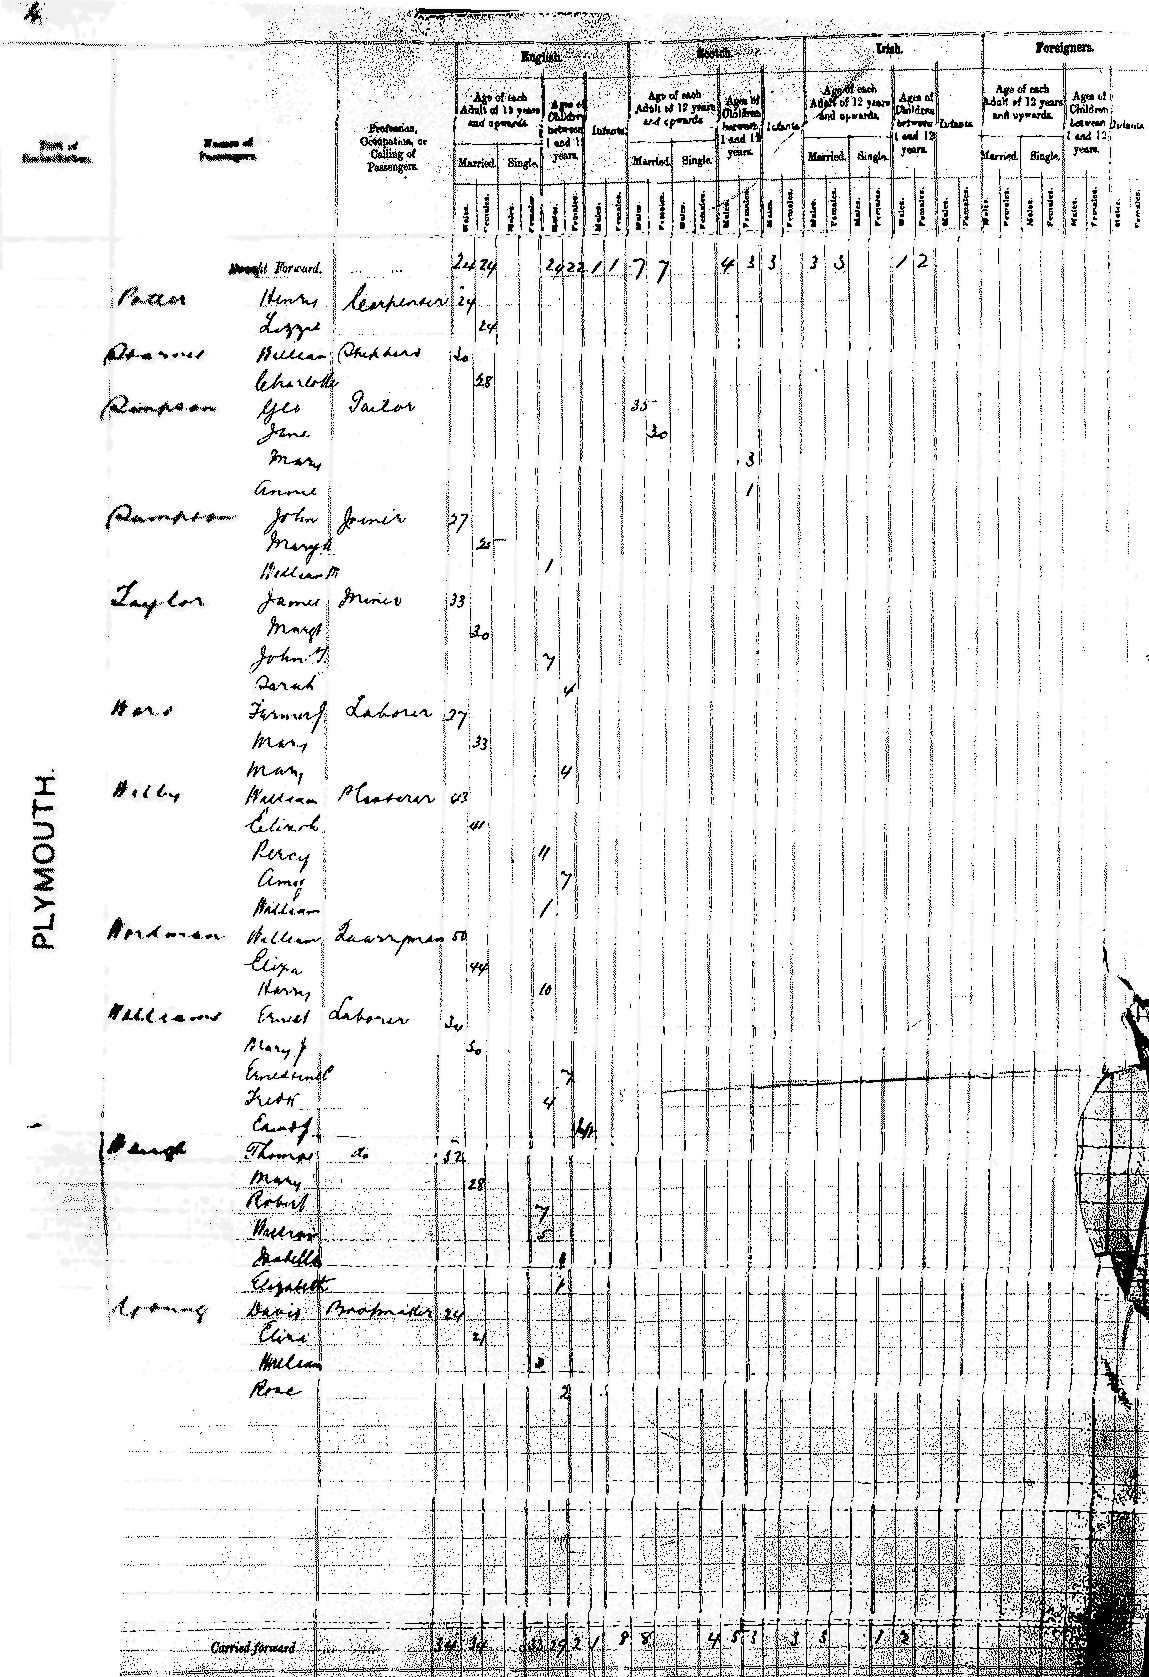 4
English. Scotch. Irish. Foreigners.
Port of Embarkation. Names of Passengers. Profession, Occupation, or Calling of Passengers.
Age of each Adult of 12 years and upwards. Ages of Children between 1 and 12 years. Infants.
Age of each Adult of 12 years and upwards. Ages of Children between 1 and 12 years. Infants.
Age of each Adult of 12 years and upwards. Ages of Children between 1 and 12 years. Infants.
Age of each Adult of 12 years and upwards. Ages of Children between 1 and 12 years. Infants.
Married. Single. Married. Single. Married. Single. Married. Single.
Males. Females. Males. Females. Males. Females. Males. Females. Males. Females. Males. Females. Males. Females. Males. Females. Males. Females. Males. Females. Males. Females. Males. Females. Males. Females. Males. Females. Males. Females. Males. Females.
Brought Forward. 24 24 24 22 1 1 7 7 4 3 3 3 3 1 2
Potter Henry Carpenter 24
Lizzie 24
William Shepherd 30
Charlotte 28
Simpson Geo Tailor 35
Jane 30
Mary 3
Annie 1
John Joiner 27
Mary A 25
William H 1
Taylor James Miner 33
Margt 30
John T. 7
Sarah 4
Laborer 37
Mary 33
Mary 4
William Plasterer 43
Elinor 41
Percy 11
Amy 7
William 1
Wordman William Quarryman 50
Eliza 44
Harry 10
Williams Ernest Laborer 34
Mary J 30
7
Fredk 4
Waugh Thomas do 32
Mary 28
Robert 7
William 5
Isabella
Elizabeth 1
Young David Bootmaker 24
Eliza 21
William 3
Rose 2
PLYMOUTH.
Carried forward 34 34 33 29 2 1 8 8 4 5 3 3 3 1 2